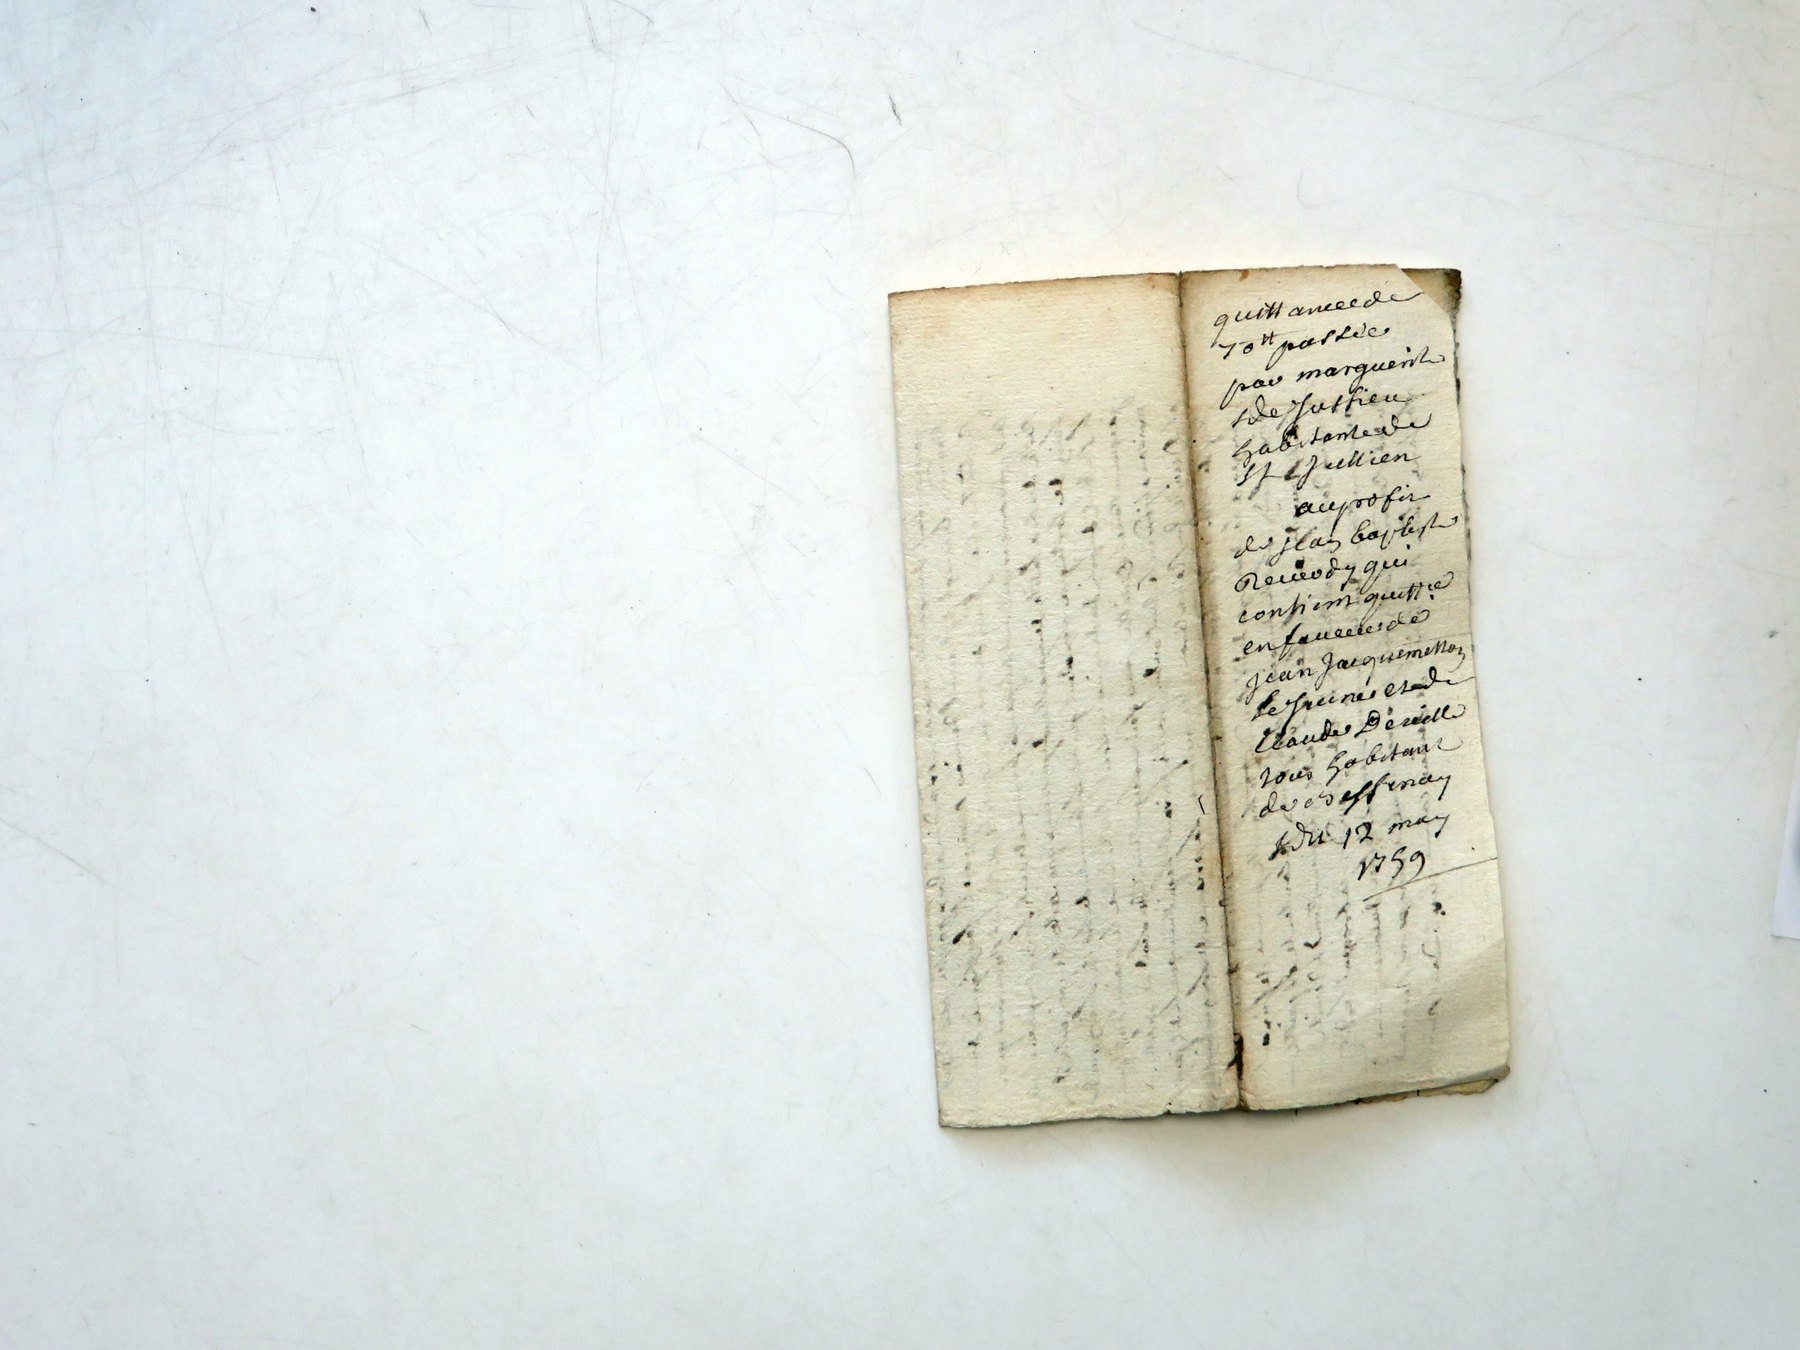 quittance de
70tt passée
par marguerite
de Jussieu
habitante de
St Jullien
au profit
de jean baptiste
qui
contient quitt.ce
en faveur de
jean Jacquemetton
le Jeune et de
Claude Deville
tous habitant
de Bessenay
du 12 may
1759